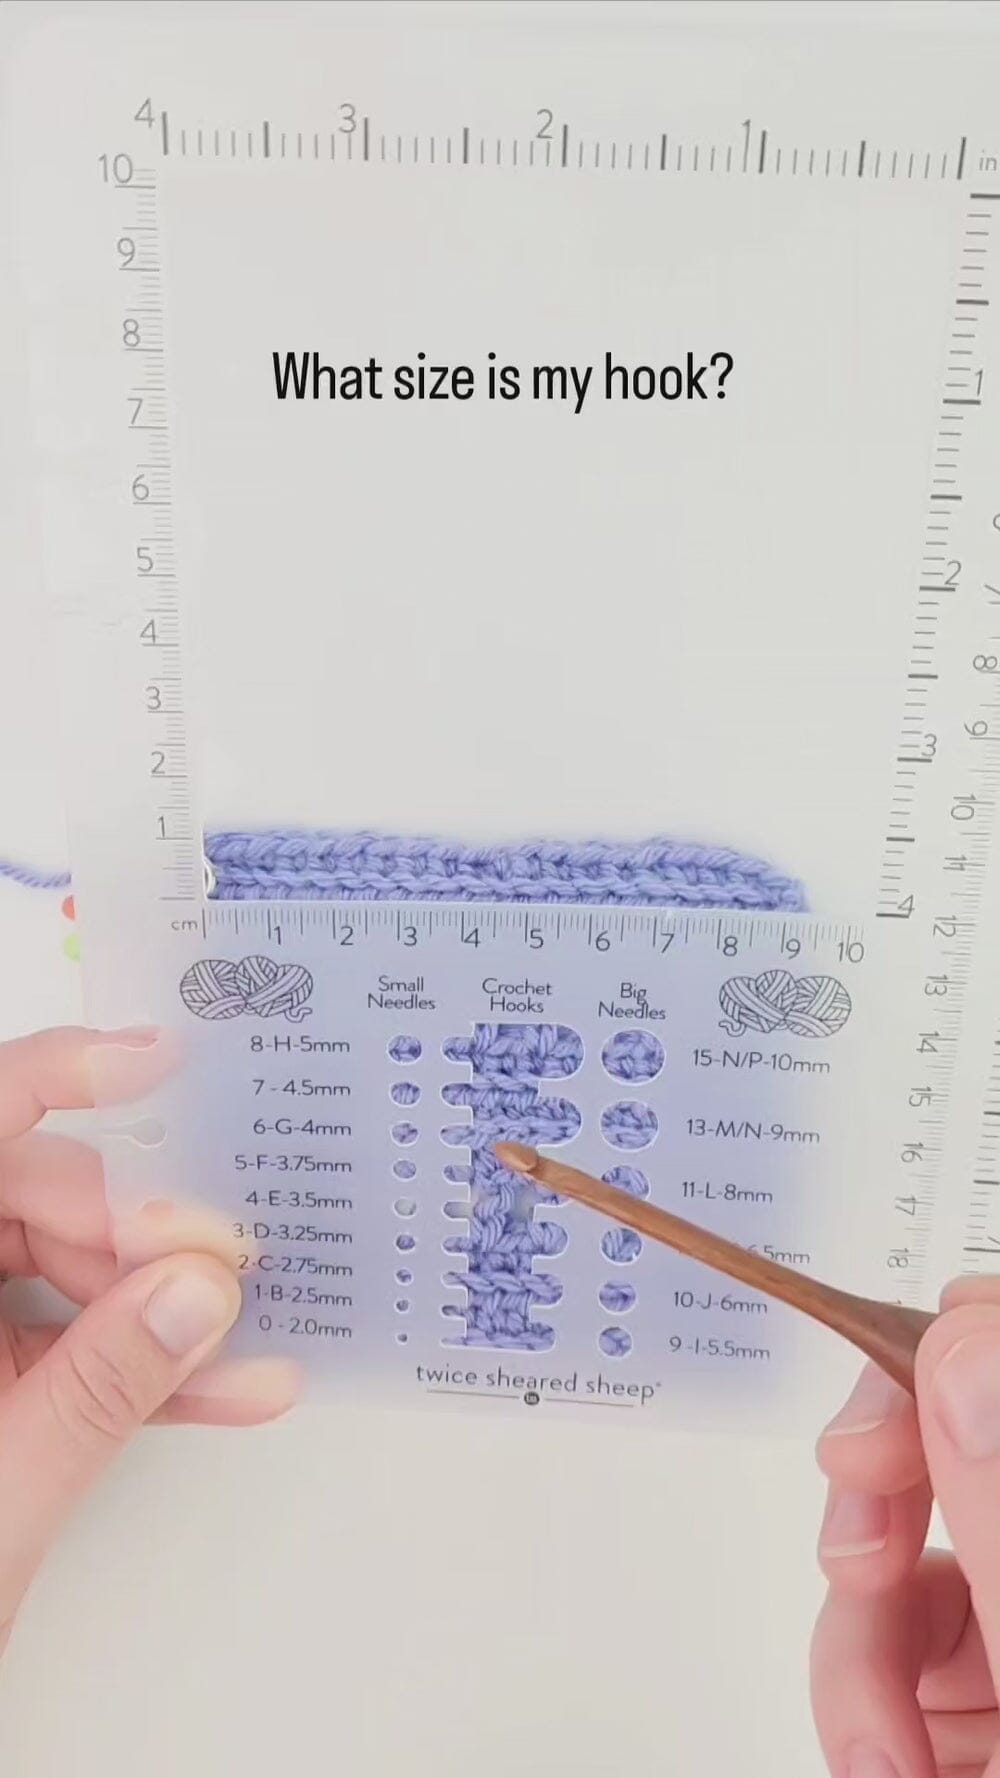 4 3 2 1 in
10
9
8
What size is my hook?
7
6
5
4
3
2
1
1
2
3
4
6
7
8
9
10
11
12
13
14
15
16
17
18
cm 1 2 3 4 5 6 7 8 9 10
Small Needles
Crochet Hooks
Big Needles
8-H-5mm
7 - 4.5mm
6-G-4mm
5-F-3.75mm
4-E-3.5mm
3-D-3.25mm
2-C-2.75mm
1-B-2.5mm
0 - 2.0mm
15-N/P-10mm
13-M/N-9mm
11-L-8mm
5mm
10-J-6mm
9-I-5.5mm
twice sheared sheep